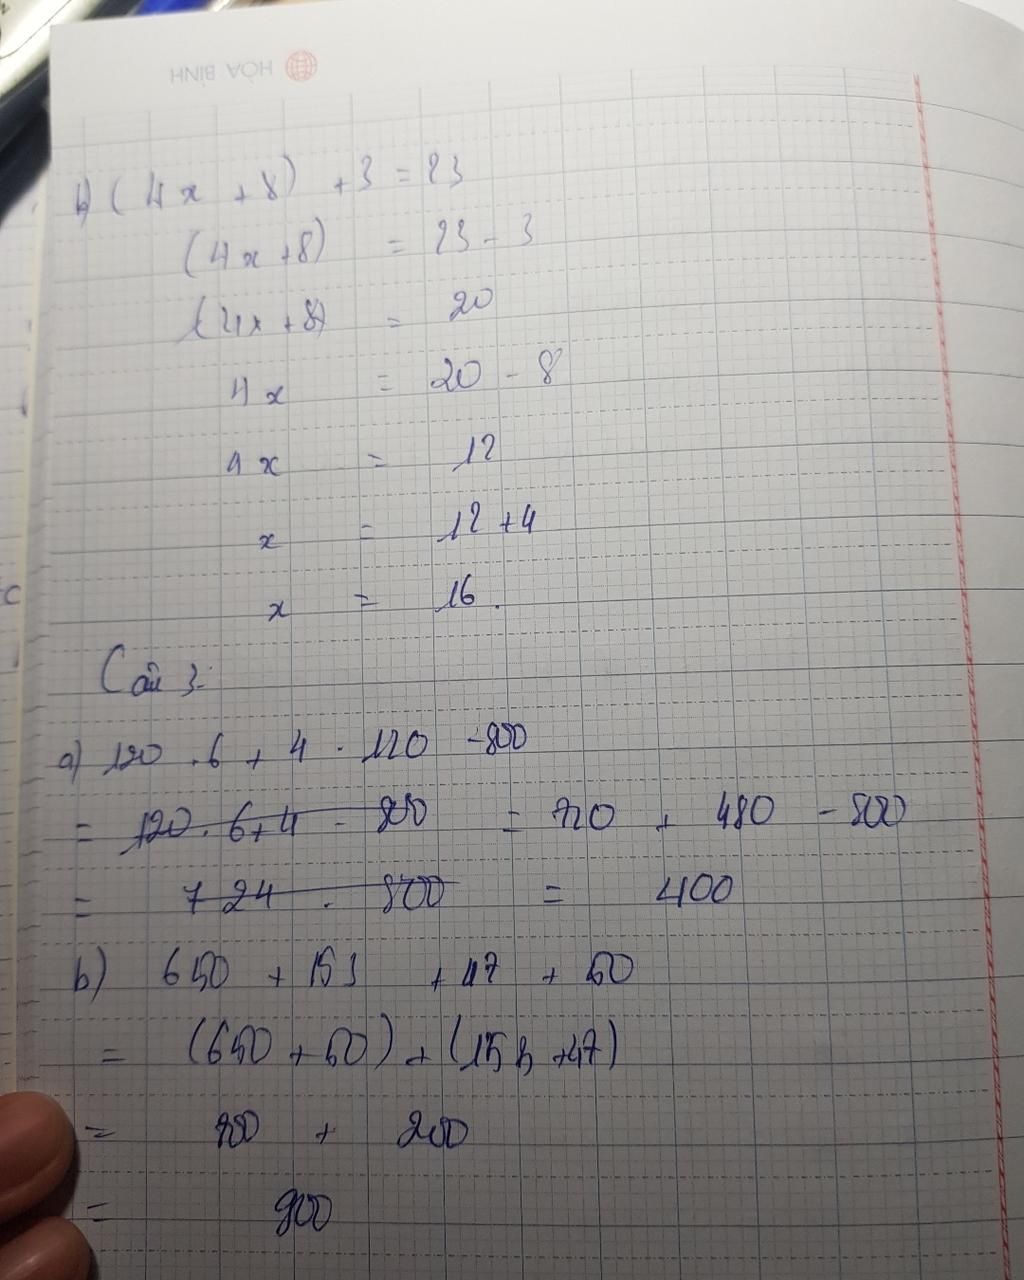 HÒA BÌNH
b) (4x + 8) + 3 = 23
(4x + 8) = 23 - 3
(4x + 8) = 20
4x = 20 - 8
4x = 12
x = 12 + 4
x = 16.
Câu 3:
a) 120 . 6 + 4 . 120 - 800
= 120 . 6 + 4 - 800 = 720 + 480 - 800
= 724 - 800 = 400
b) 650 + 153 + 47 + 50
= (650 + 50) + (153 + 47)
= 700 + 200
= 900